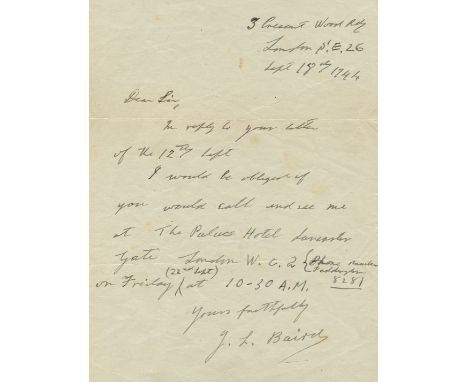 3 Crescent Wood Rd
London S.E. 26
Sept 18th 1944
Dear Sir,
In reply to your letter
of the 12th Sept
I would be obliged if
you would call and see me
at The Palace Hotel Lancaster
Gate London W.C.2 (Phone Number
Paddington
8281
on Friday (22nd Sept) at 10-30 A.M.
Yours faithfully
J. L. Baird